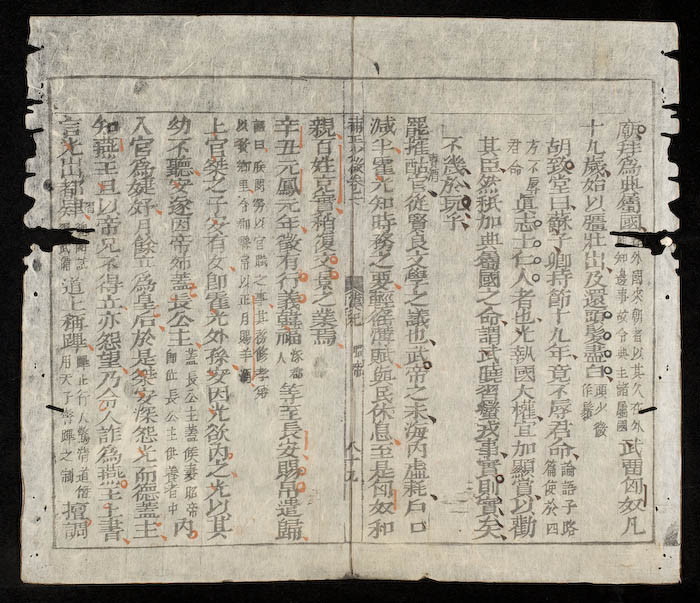 廟拜爲典屬國外國來朝者以其久在外知邊事故令典主諸屬國武畱匈奴凡
十九歲始以彊壯出及還頭髮盡白
胡致堂曰蘇子卿持節十九年竟不辱君命論語子路篇使於四
方不辱君命眞志士仁人者也光執國大權宜加顯賞以勸
其臣然秪加典屬國之命謂武曉習蠻戎事實則實矣
不幾於玩乎
罷榷酤官從賢良文學之議也武帝之末海内虛耗戶口
減半霍光知時務之要輕徭薄賦與民休息至是匈奴和
親百姓充實稍復文景之業焉
辛丑元鳳元年徵有行義韓福涿郡人等至長安賜帛遣歸
詔曰朕閔勞以官職之事其務修孝弟以敎鄉里令郡縣常以正月賜羊酒
上官桀之子安有女卽霍光外孫安因光欲内之光以其
幼不聽安遂因帝姊蓋長公主内
入宮爲婕妤月餘立爲皇后於是桀安深怨光而德蓋主
知燕王旦以帝兄不得立亦怨望乃令人詐爲燕王上書
言光出都肄道上稱蹕擅調
八十九